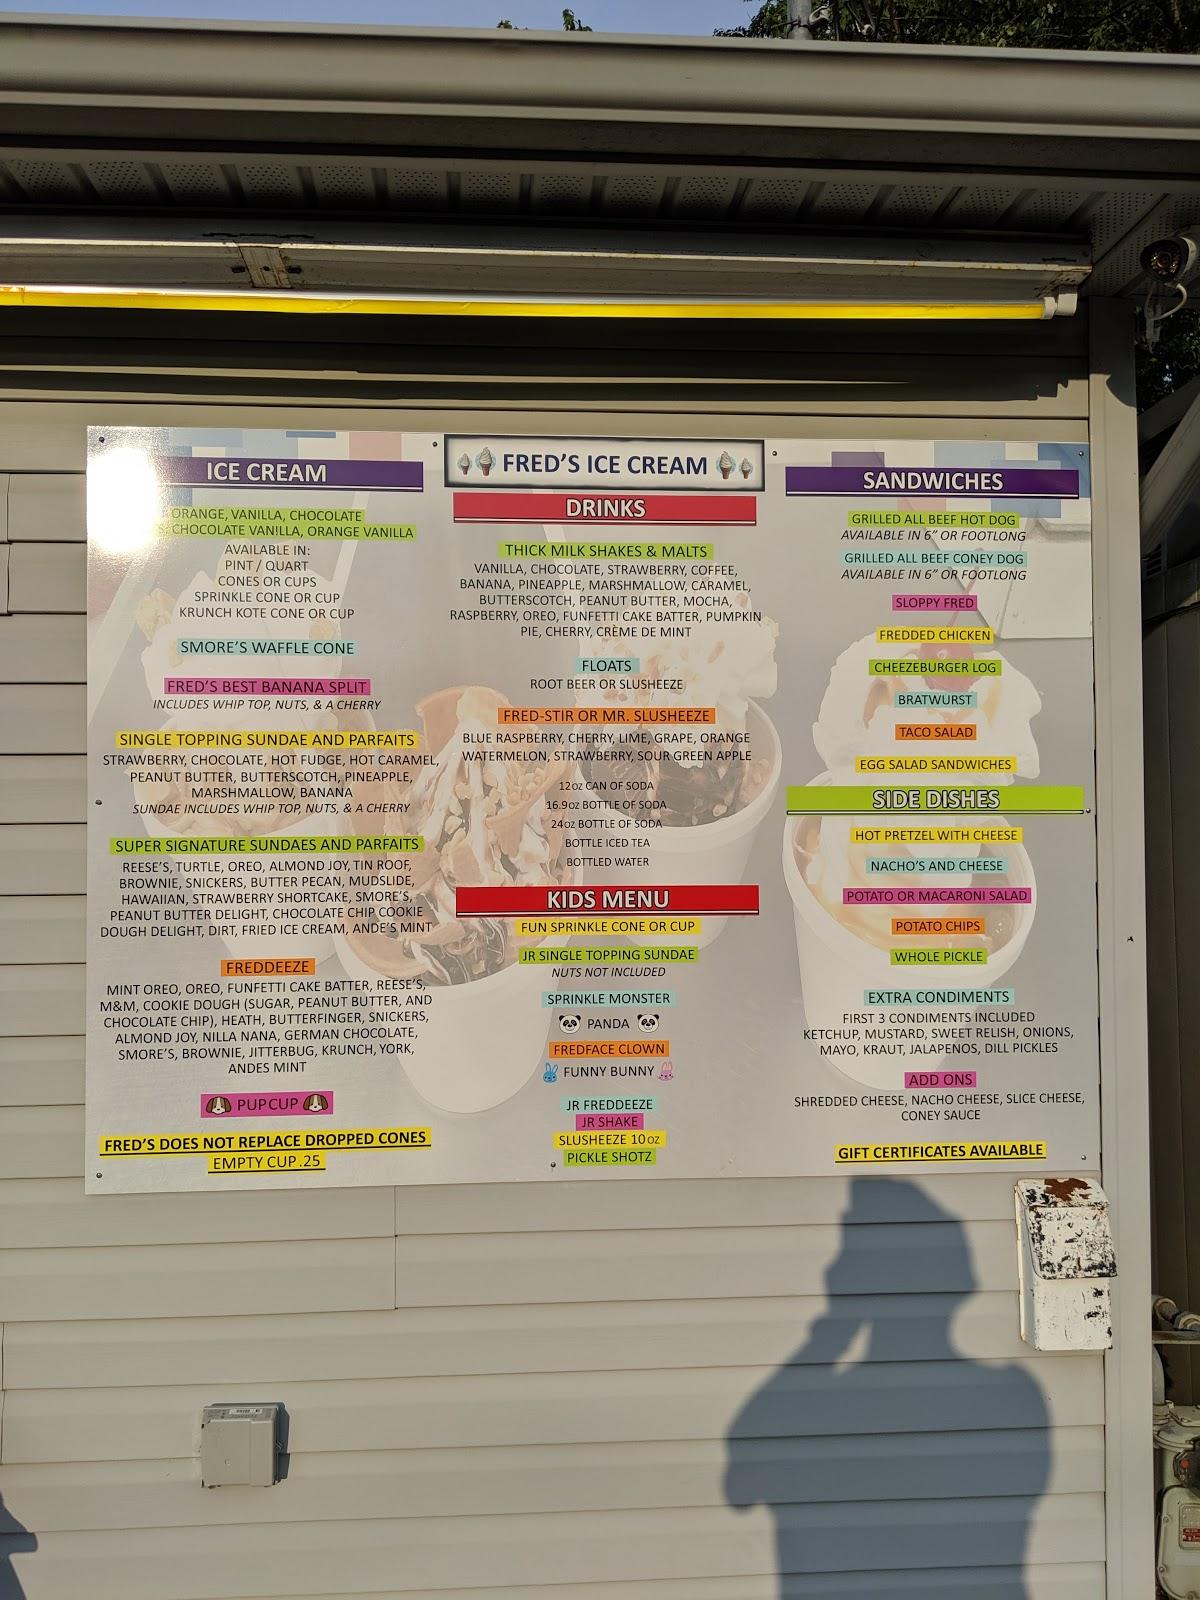 FRED'S ICE CREAM
ICE CREAM
ORANGE, VANILLA, CHOCOLATE
CHOCOLATE VANILLA, ORANGE VANILLA
AVAILABLE IN:
PINT / QUART
CONES OR CUPS
SPRINKLE CONE OR CUP
KRUNCH KOTE CONE OR CUP
SMORE'S WAFFLE CONE
FRED'S BEST BANANA SPLIT
INCLUDES WHIP TOP, NUTS, & A CHERRY
SINGLE TOPPING SUNDAE AND PARFAITS
STRAWBERRY, CHOCOLATE, HOT FUDGE, HOT CARAMEL,
PEANUT BUTTER, BUTTERSCOTCH, PINEAPPLE,
MARSHMALLOW, BANANA
SUNDAE INCLUDES WHIP TOP, NUTS, & A CHERRY
SUPER SIGNATURE SUNDAES AND PARFAITS
REESE'S, TURTLE, OREO, ALMOND JOY, TIN ROOF,
BROWNIE, SNICKERS, BUTTER PECAN, MUDSLIDE,
HAWAIIAN, STRAWBERRY SHORTCAKE, SMORE'S,
PEANUT BUTTER DELIGHT, CHOCOLATE CHIP COOKIE
DOUGH DELIGHT, DIRT, FRIED ICE CREAM, ANDE'S MINT
FREDDEEZE
MINT OREO, OREO, FUNFETTI CAKE BATTER, REESE'S,
M&M, COOKIE DOUGH (SUGAR, PEANUT BUTTER, AND
CHOCOLATE CHIP), HEATH, BUTTERFINGER, SNICKERS,
ALMOND JOY, NILLA NANA, GERMAN CHOCOLATE,
SMORE'S, BROWNIE, JITTERBUG, KRUNCH, YORK,
ANDES MINT
PUPCUP
FRED'S DOES NOT REPLACE DROPPED CONES
EMPTY CUP .25
DRINKS
THICK MILK SHAKES & MALTS
VANILLA, CHOCOLATE, STRAWBERRY, COFFEE,
BANANA, PINEAPPLE, MARSHMALLOW, CARAMEL,
BUTTERSCOTCH, PEANUT BUTTER, MOCHA,
RASPBERRY, OREO, FUNFETTI CAKE BATTER, PUMPKIN
PIE, CHERRY, CRÈME DE MINT
FLOATS
ROOT BEER OR SLUSHEEZE
FRED-STIR OR MR. SLUSHEEZE
BLUE RASPBERRY, CHERRY, LIME, GRAPE, ORANGE
WATERMELON, STRAWBERRY, SOUR GREEN APPLE
12oz CAN OF SODA
16.9oz BOTTLE OF SODA
24oz BOTTLE OF SODA
BOTTLE ICED TEA
BOTTLED WATER
KIDS MENU
FUN SPRINKLE CONE OR CUP
JR SINGLE TOPPING SUNDAE
NUTS NOT INCLUDED
SPRINKLE MONSTER
PANDA
FREDFACE CLOWN
FUNNY BUNNY
JR FREDDEEZE
JR SHAKE
SLUSHEEZE 10oz
PICKLE SHOTZ
SANDWICHES
GRILLED ALL BEEF HOT DOG
AVAILABLE IN 6" OR FOOTLONG
GRILLED ALL BEEF CONEY DOG
AVAILABLE IN 6" OR FOOTLONG
SLOPPY FRED
FREDDED CHICKEN
CHEEZEBURGER LOG
BRATWURST
TACO SALAD
EGG SALAD SANDWICHES
SIDE DISHES
HOT PRETZEL WITH CHEESE
NACHO'S AND CHEESE
POTATO OR MACARONI SALAD
POTATO CHIPS
WHOLE PICKLE
EXTRA CONDIMENTS
FIRST 3 CONDIMENTS INCLUDED
KETCHUP, MUSTARD, SWEET RELISH, ONIONS,
MAYO, KRAUT, JALAPENOS, DILL PICKLES
ADD ONS
SHREDDED CHEESE, NACHO CHEESE, SLICE CHEESE,
CONEY SAUCE
GIFT CERTIFICATES AVAILABLE